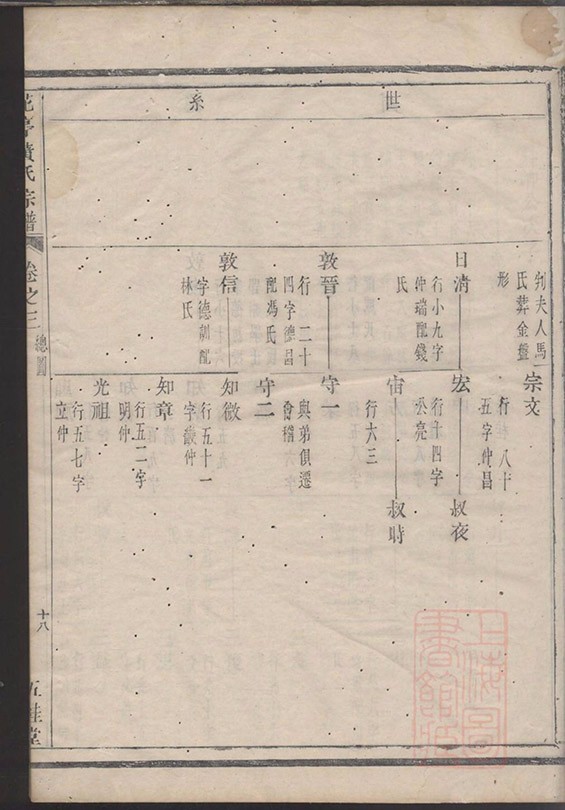 世系
判夫人馬
氏葬金盤
形
宗文
行八十
五字仲昌
日清
行小九字
仲瑞配錢
氏
宏
行十四字
公亮
叔夜
宙
行六三
叔時
敦晉
行二十
四字德昌
配馮氏
守一
與弟俱遷
會稽
守二
敦信
字德訓配
林氏
知微
行五十一
字徽仲
知章
行五二字
明仲
光祖
行五七字
立仲
花亭黄氏宗譜
卷之三
總圖
十八
五桂堂
上海圖書館藏